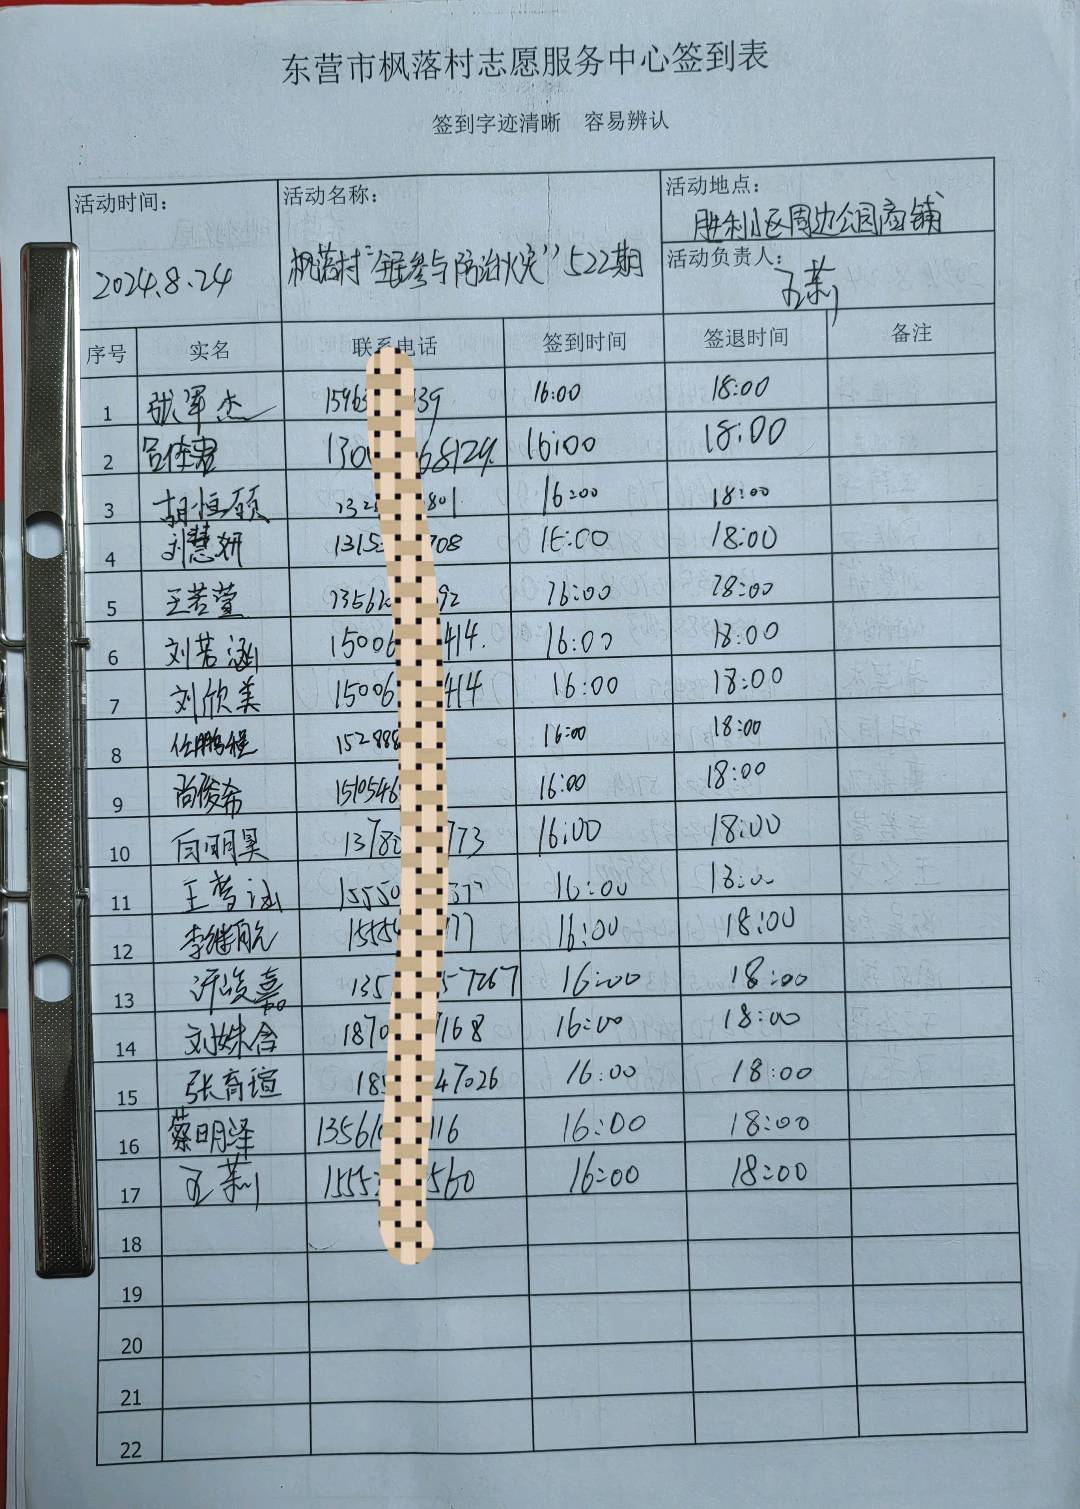 东营市枫落村志愿服务中心签到表
签到字迹清晰 容易辨认
活动时间: 活动名称: 活动地点:
胜利小区周边公园商铺
2024.8.24 枫落村“全民参与防治火灾”522期 活动负责人:
莉
序号 实名 联系电话 签到时间 签退时间 备注
1 张军杰 1596 39 16:00 18:00
2 130 68124 16:00 18:00
3 胡恒硕 801 16:00 18:00
4 刘慧妍 1315 708 16:00 18:00
5 王若萱 1356 92 16:00 18:00
6 刘若涵 15006 414. 16:00 18:00
7 刘欣美 15006 414 16:00 18:00
8 任鹏程 152888 16:00 18:00
9 尚俊希 1510546 16:00 18:00
10 白明昊 13780 773 16:00 18:00
11 王梦涵 15550 377 16:00 18:00
12 李继航 1555 77 16:00 18:00
13 135 57267 16:00 18:00
14 刘姝含 1870 168 16:00 18:00
15 张育瑄 185 47026 16:00 18:00
16 蔡明泽 13561 116 16:00 18:00
17 莉 1555 560 16:00 18:00
18
19
20
21
22